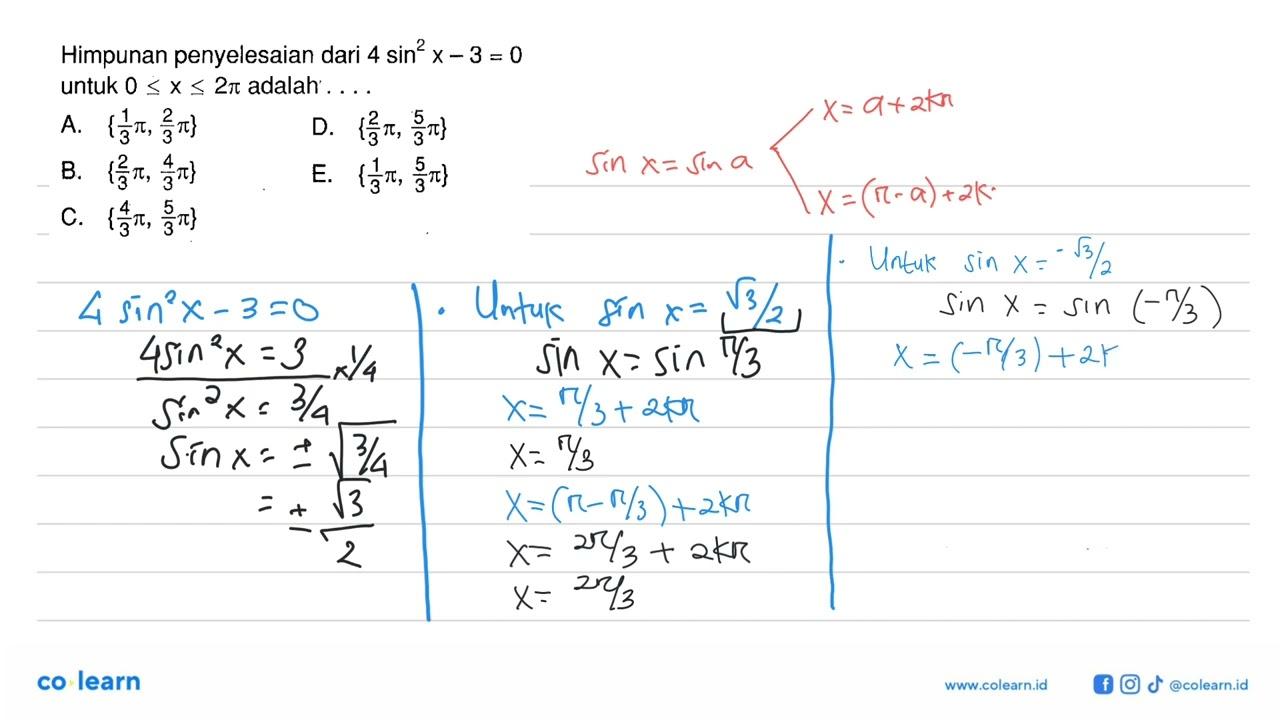 Himpunan penyelesaian dari 4 sin² x – 3 = 0
untuk 0 ≤ x ≤ 2π adalah . . . .
A. {1/3 π, 2/3 π}
B. {2/3 π, 4/3 π}
C. {4/3 π, 5/3 π}
D. {2/3 π, 5/3 π}
E. {1/3 π, 5/3 π}
sin x = sin a
x = a + 2kπ
x = (π - a) + 2k
4 sin² x - 3 = 0
4 sin² x = 3 ×1/4
sin² x = 3/4
sin x = ± √3/4
= ± √3/2
· Untuk sin x = √3/2
sin x = sin π/3
x = π/3 + 2kπ
x = π/3
x = (π - π/3) + 2kπ
x = 2π/3 + 2kπ
x = 2π/3
· Untuk sin x = -√3/2
sin x = sin (-π/3)
x = (-π/3) + 2k
co learn
www.colearn.id
@colearn.id